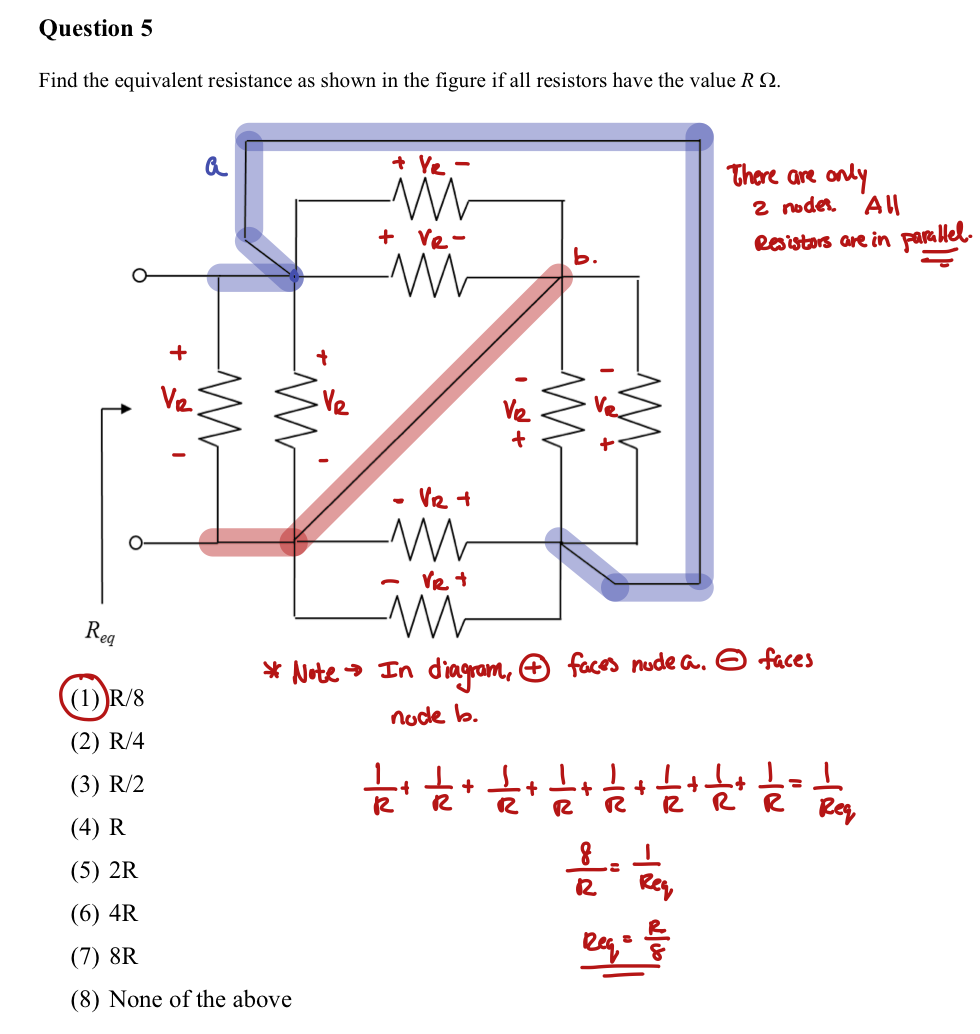 Question 5
Find the equivalent resistance as shown in the figure if all resistors have the value R Ω.
a
+ VR -
There are only
2 nodes. All
Resistors are in parallel.
+ VR -
b.
+
VR
-
+
VR
-
-
VR
+
-
VR
+
- VR +
- VR +
Req
* Note → In diagram, ⊕ faces node a. ⊖ faces
node b.
(1) R/8
(2) R/4
(3) R/2
(4) R
(5) 2R
(6) 4R
(7) 8R
(8) None of the above
1/R + 1/R + 1/R + 1/R + 1/R + 1/R + 1/R + 1/R = 1/Req
8/R = 1/Req
Req = R/8